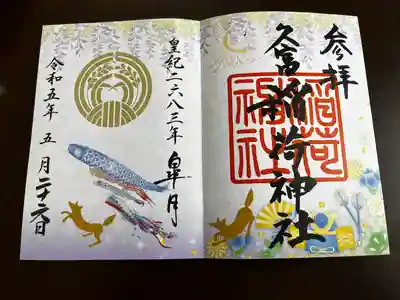 参拝
久富稲荷神社
稲荷
神社
皇紀二六八三年 皐月
令和五年 五月二十六日